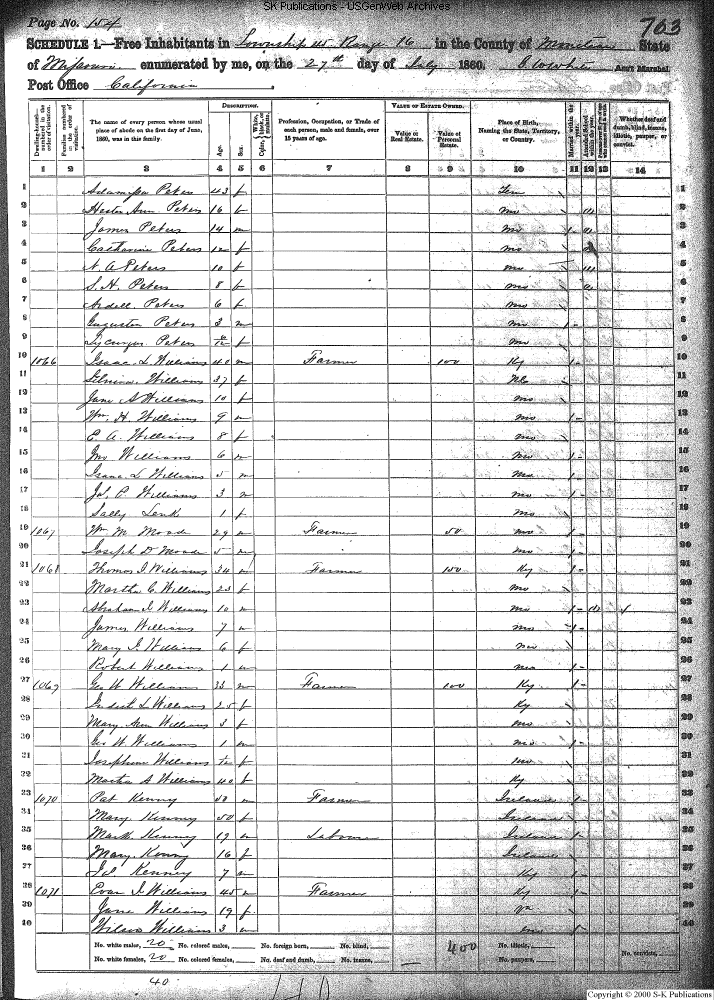 SK Publications - USGenWeb Archives
Page No. 154
703
SCHEDULE 1.—Free Inhabitants in Township 45 Range 16 in the County of Moniteau State
of Missouri enumerated by me, on the 27th day of July 1860. Ass't Marshal.
Post Office California
DESCRIPTION.
VALUE OF ESTATE OWNED.
Dwelling-houses—numbered in the order of visitation.
Families numbered in the order of visitation.
The name of every person whose usual place of abode on the first day of June, 1860, was in this family.
Age.
Sex.
Color, White, black, or mulatto.
Profession, Occupation, or Trade of each person, male and female, over 15 years of age.
Value of Real Estate.
Value of Personal Estate.
Place of Birth, Naming the State, Territory, or Country.
Married within the year.
Attended School within the year.
Whether deaf and dumb, blind, insane, idiotic, pauper, or convict.
1 2 3 4 5 6 7 8 9 10 11 12 13 14
1 Peters 43 f Ten 1
2 Hester Ann Peters 16 f Mo 2
3 James Peters 14 m Mo 1 3
4 Catharine Peters 12 f Mo 4
5 N. A Peters 10 f Mo 5
6 S. H. Peters 8 f Mo 6
7 Ardell Peters 6 f Mo 7
8 Augustus Peters 3 m Mo 1 8
9 Lycurgus Peters f Mo 9
10 1066 Isaac L. Williams 40 m Farmer 100 Ky 1 10
11 Williams 37 f 11
12 Jane A Williams 10 f Mo 12
13 Wm. H. Williams 9 m Mo 1 13
14 E. A. Williams 8 f Mo 14
15 Jno Williams 6 m Mo 1 15
16 Isaac L Williams 5 m Mo 1 16
17 Jas. P. Williams 3 m Mo 1 17
18 Sally Lenk 1 f Mo 18
19 1067 Wm M. Moade 29 m Farmer 50 Mo 1 19
20 Joseph D Moade 5 m Mo 1 20
21 1068 Thomas J. Williams 34 m Farmer 150 Ky 1 21
22 Martha C. Williams 23 f Mo 22
23 Abraham J. Williams 10 m Mo 1 23
24 James Williams 7 m Mo 1 24
25 Mary J. Williams 6 f Mo 25
26 Robert Williams 1 m Mo 1 26
27 1069 Geo W Williams 33 m Farmer 100 Ky 1 27
28 L Williams 25 f Ky 28
29 Mary Ann Williams 3 f Mo 29
30 Geo W Williams 1 m Mo 1 30
31 Josephine Williams f Mo 31
32 Martha A Williams 40 f Ky 32
33 1070 Pat Kenny 50 m Farmer Ireland 1 33
34 Mary Kenny 50 f Ireland 34
35 Mark Kenney 19 m Laborer Ireland 1 35
36 Mary Kenny 16 f Ireland 36
37 Kenney 7 m Ky 1 37
38 1071 Evan J. Williams 45 m Farmer Ky 1 38
39 Jane Williams 19 f Va 39
40 Wilson Williams 3 m Mo 1 40
No. white males, 20 No. colored males, No. foreign born, No. blind, 400 No. idiotic,
No. white females, 20 No. colored females, No. deaf and dumb, No. insane, No. paupers, No. convicts,
40
Copyright © 2000 S-K Publications